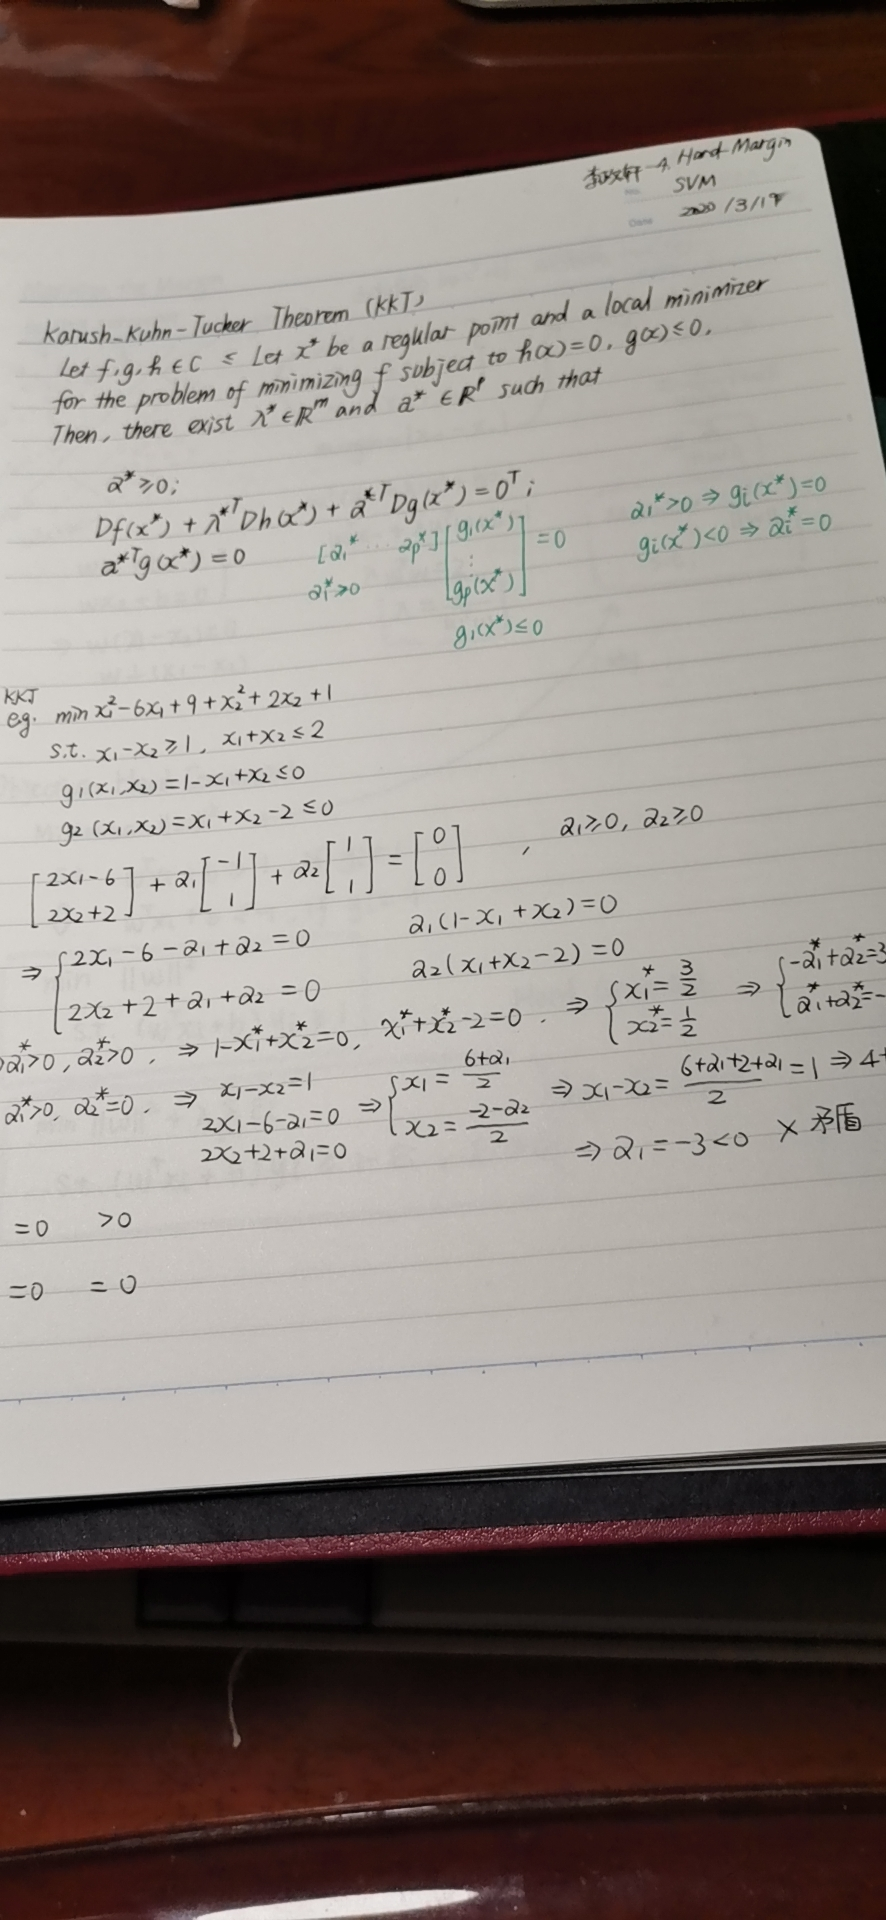 李政轩-4. Hard Margin
SVM
Date 2020/3/19
Karush-Kuhn-Tucker Theorem (KKT)
Let f,g,h ∈ C ≤ Let x* be a regular point and a local minimizer
for the problem of minimizing f subject to h(x)=0, g(x)≤0.
Then, there exist λ*∈R^m and a* ∈ R^p such that
a*≥0;
Df(x*) + λ*^T Dh(x*) + a*^T Dg(x*) = 0^T;
a*^T g(x*) = 0
[a1* ... ap*] [g1(x*) ⋮ gp(x*)] = 0
ai*≥0
g1(x*)≤0
ai*>0 ⇒ gi(x*)=0
gi(x*)<0 ⇒ ai*=0
KKT
eg. min x1²-6x1+9+x2²+2x2+1
s.t. x1-x2≥1, x1+x2≤2
g1(x1,x2)=1-x1+x2≤0
g2(x1,x2)=x1+x2-2≤0
[2x1-6 2x2+2] + a1[-1 1] + a2[1 1] = [0 0] , a1≥0, a2≥0
⇒ {2x1-6-a1+a2=0 a1(1-x1+x2)=0
2x2+2+a1+a2=0 a2(x1+x2-2)=0
a1*>0, a2*>0. ⇒ 1-x1*+x2*=0, x1*+x2*-2=0. ⇒ {x1*=3/2 x2*=1/2 ⇒ {-a1*+a2*=3 a1*+a2*=-
a1*>0, a2*=0. ⇒ x1-x2=1
2x1-6-a1=0
2x2+2+a1=0
⇒ {x1=(6+a1)/2 x2=(-2-a2)/2 ⇒ x1-x2=(6+a1+2+a1)/2=1 ⇒ 4+
⇒ a1=-3<0 × 矛盾
=0 >0
=0 =0